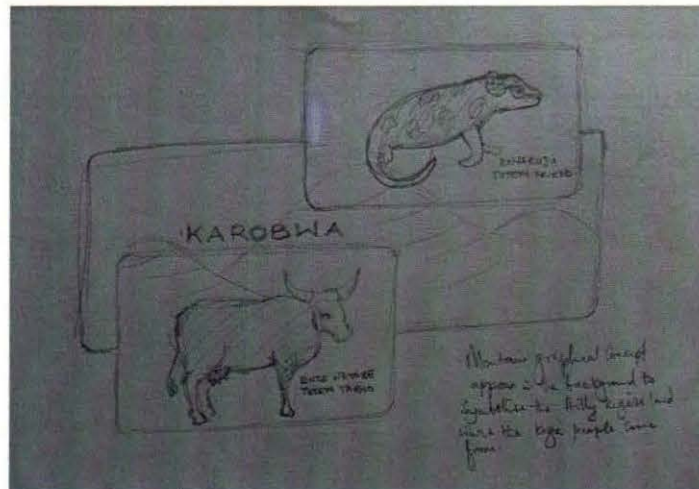 TOTEM TABOO
KAROBWA
TOTEM TABOO
Mountain graphical concept
appear in the background to
symbolise the Hilly region land
were the kiga people come
from.